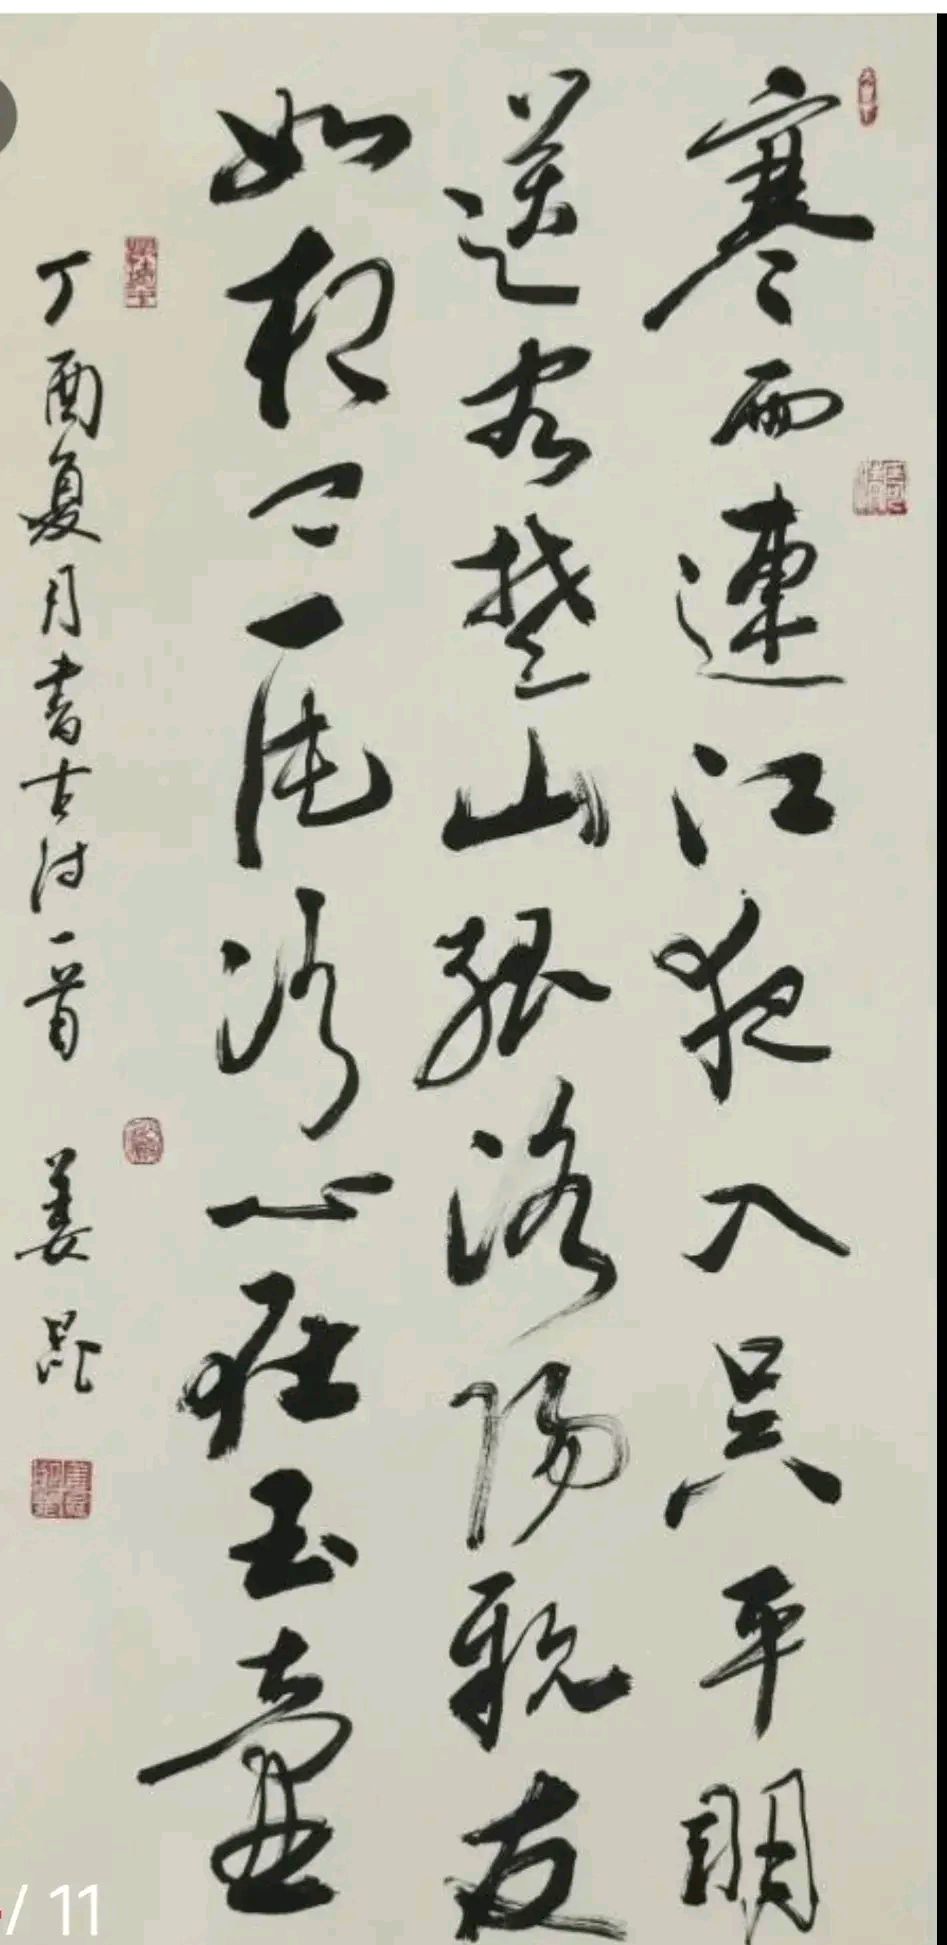 寒雨連江夜入吳平明
送客楚山孤洛陽親友
如相问一片冰心在玉壺
丁酉夏月書古诗一首 姜昆
/ 11